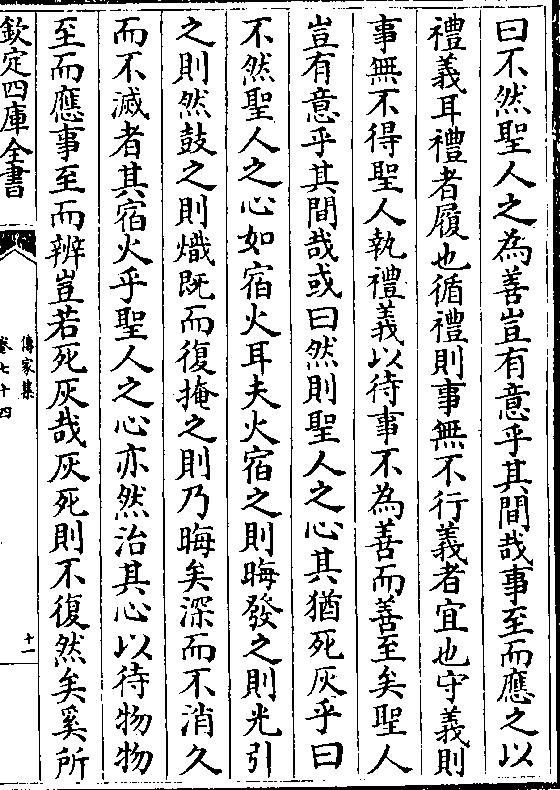 曰不然聖人之為善豈有意乎其間哉事至而應之以
禮義耳禮者履也循禮則事無不行義者宜也守義則
事無不得聖人執禮義以待事不為善而善至矣聖人
豈有意乎其間哉或曰然則聖人之心其猶死灰乎曰
不然聖人之心如宿火耳夫火宿之則晦發之則光引
之則然鼓之則熾既而復掩之則乃晦矣深而不消久
而不滅者其宿火乎聖人之心亦然治其心以待物物
至而應事至而辨豈若死灰哉灰死則不復然矣奚所
欽定四庫全書
傳家集
卷七十四
十一